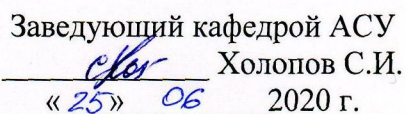 Заведующий кафедрой АСУ
Холопов С.И.
«25» 06 2020 г.